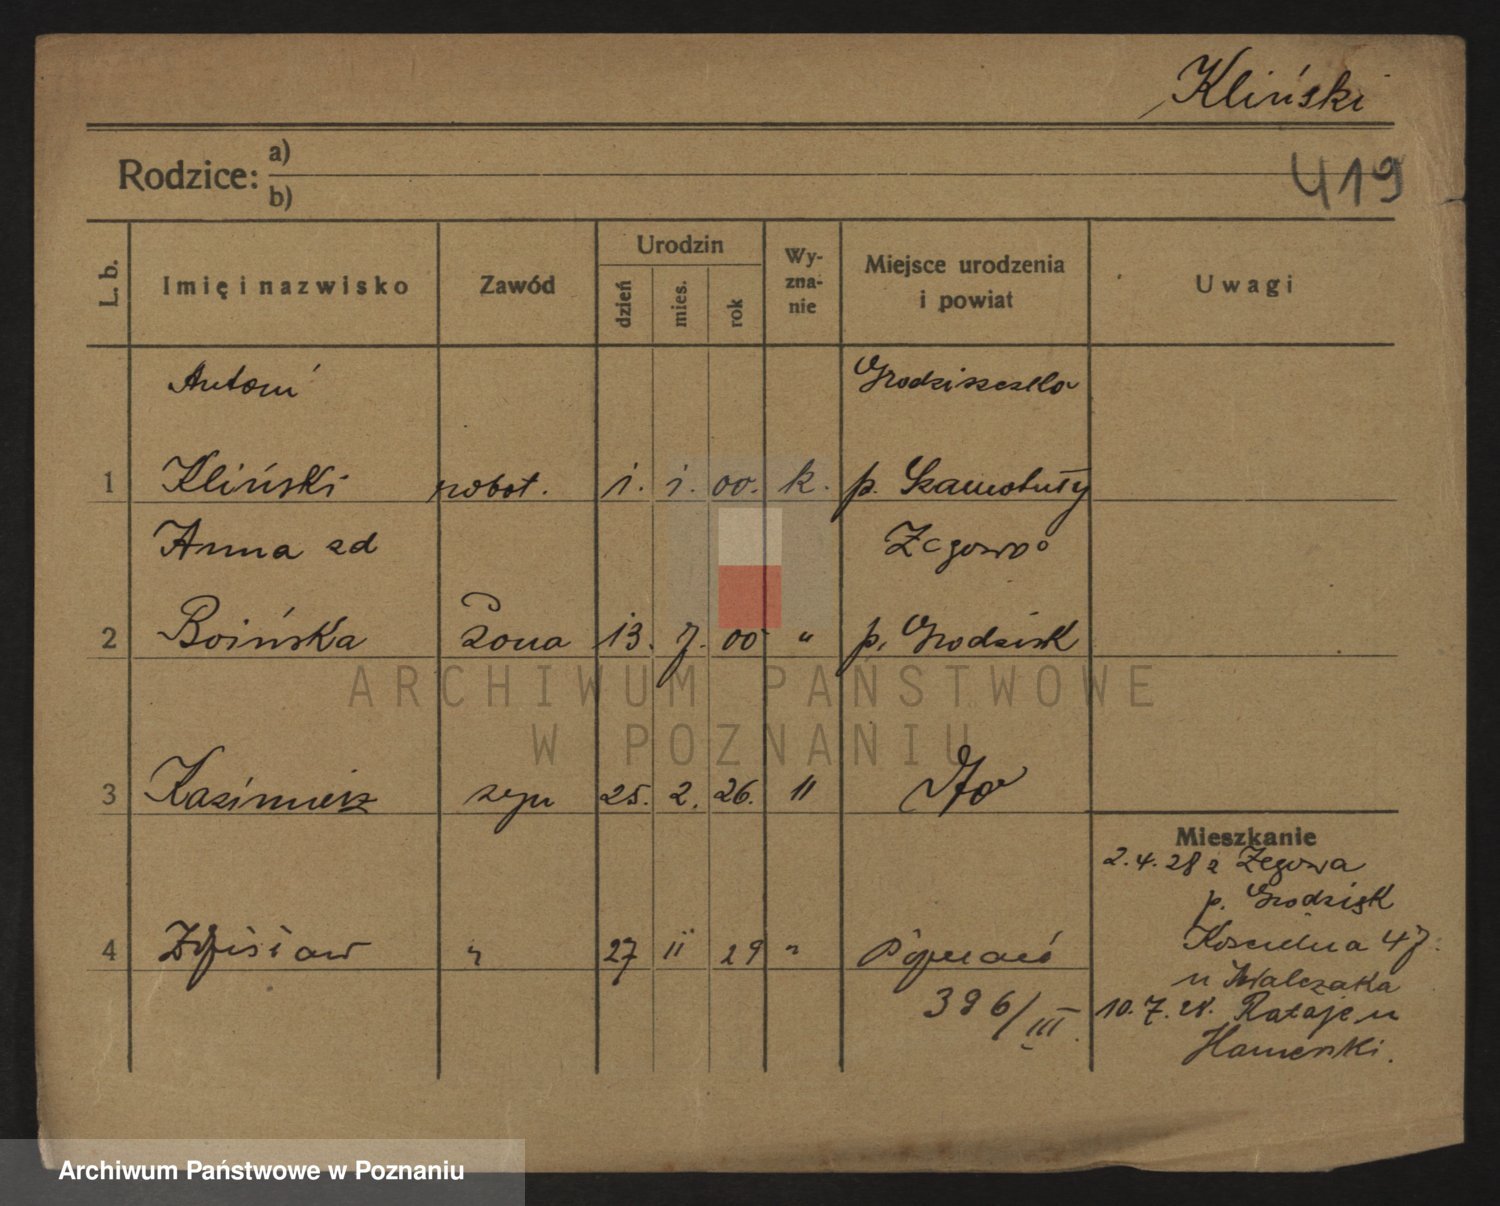 Kliński
419
Rodzice: a)
b)
L. b.
Imię i nazwisko
Zawód
Urodzin
dzień
mies.
rok
Wy-
zna-
nie
Miejsce urodzenia
i powiat
Uwagi
Antoni Grodziszczko
1 Kliński robot. 1. 1. 00. k. p. Szamotuły
Anna zd Zegowo
2 Boińska żona 13. 7. 00 " p. Grodzisk
ARCHIWUM PAŃSTWOWE
W POZNANIU
3 Kazimierz syn 25. 2. 26. "
Mieszkanie
2.4.28 z Zegowa
p. Grodzisk
4 Zdzisław " 27 11 29 " Poznań
Kościelna 47.
u Walczaka
396/III.
10.7.28. Rataje u
Hamerski.
Archiwum Państwowe w Poznaniu